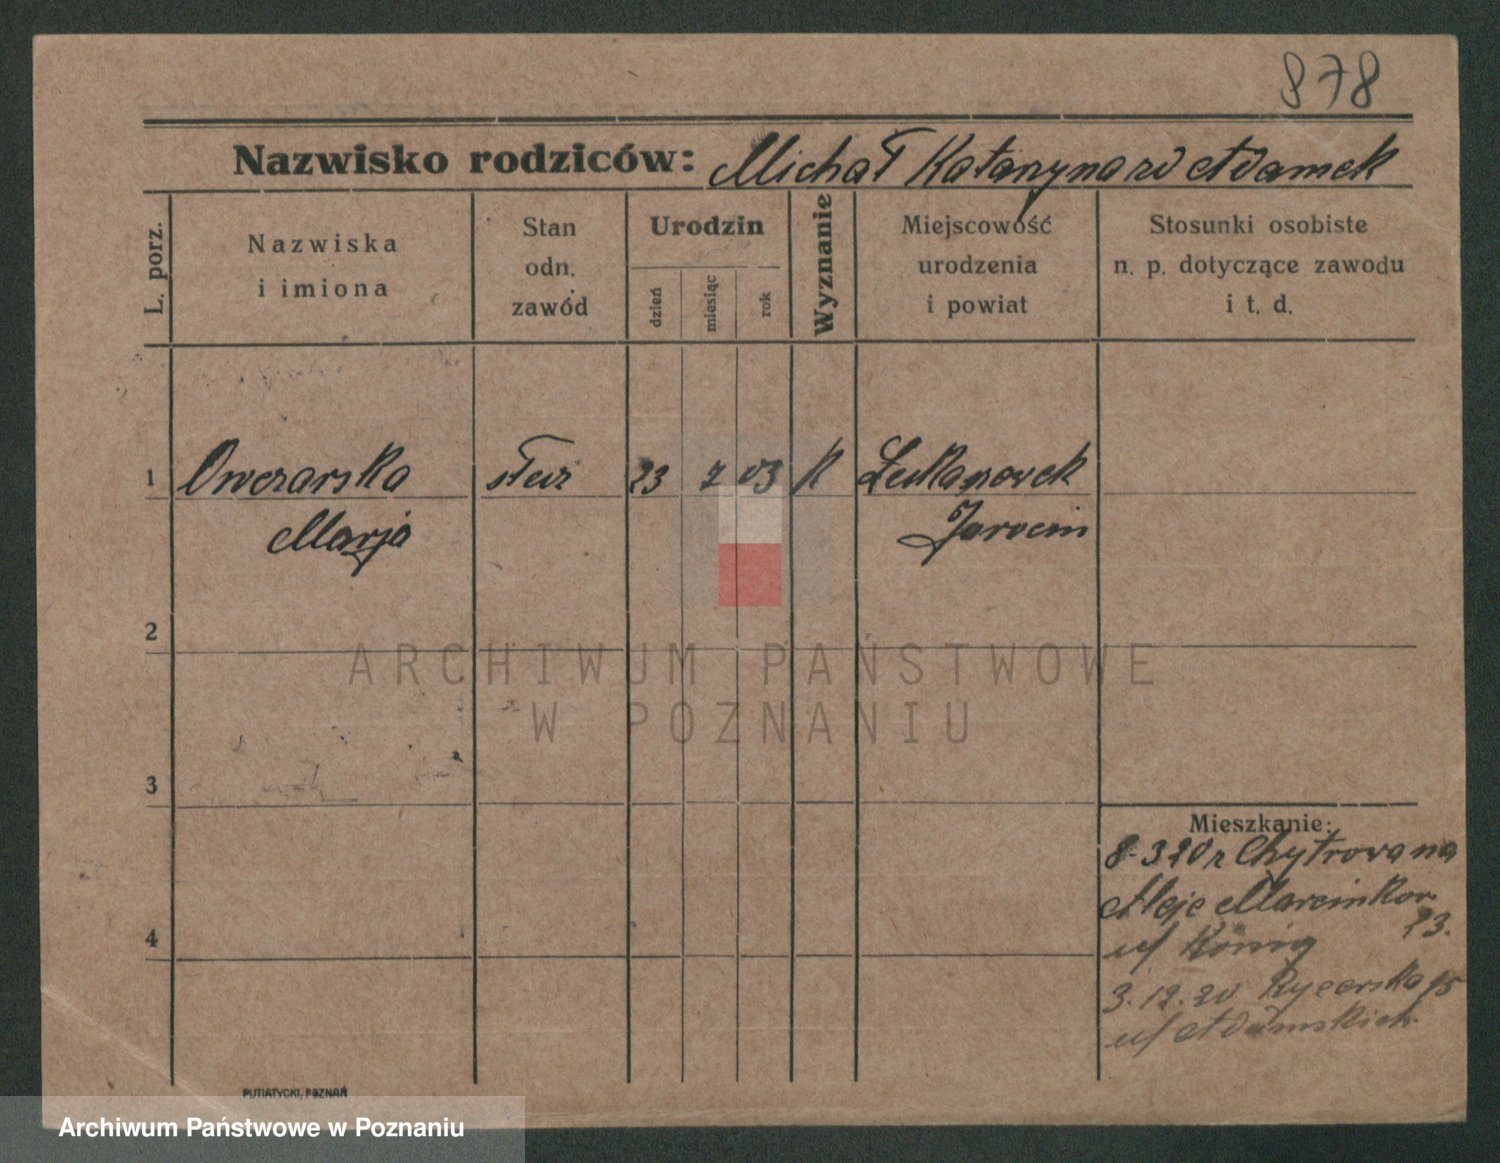 878
Nazwisko rodziców: Michał Katarzyna zd Adamek
L. porz.
Nazwiska
i imiona
Stan
odn.
zawód
Urodzin
dzień
miesiąc
rok
Wyznanie
Miejscowość
urodzenia
i powiat
Stosunki osobiste
n. p. dotyczące zawodu
i t. d.
1 Owczarska służ 23 03 K
Marja Jarocin
2
ARCHIWUM PAŃSTWOWE
W POZNANIU
3
Mieszkanie:
8-3 20 r
Aleje Marcinkow
23.
4
u/ König
3.12.20 Rycerska 15
u/ Adamskich
PUTIATYCKI, POZNAŃ
Archiwum Państwowe w Poznaniu